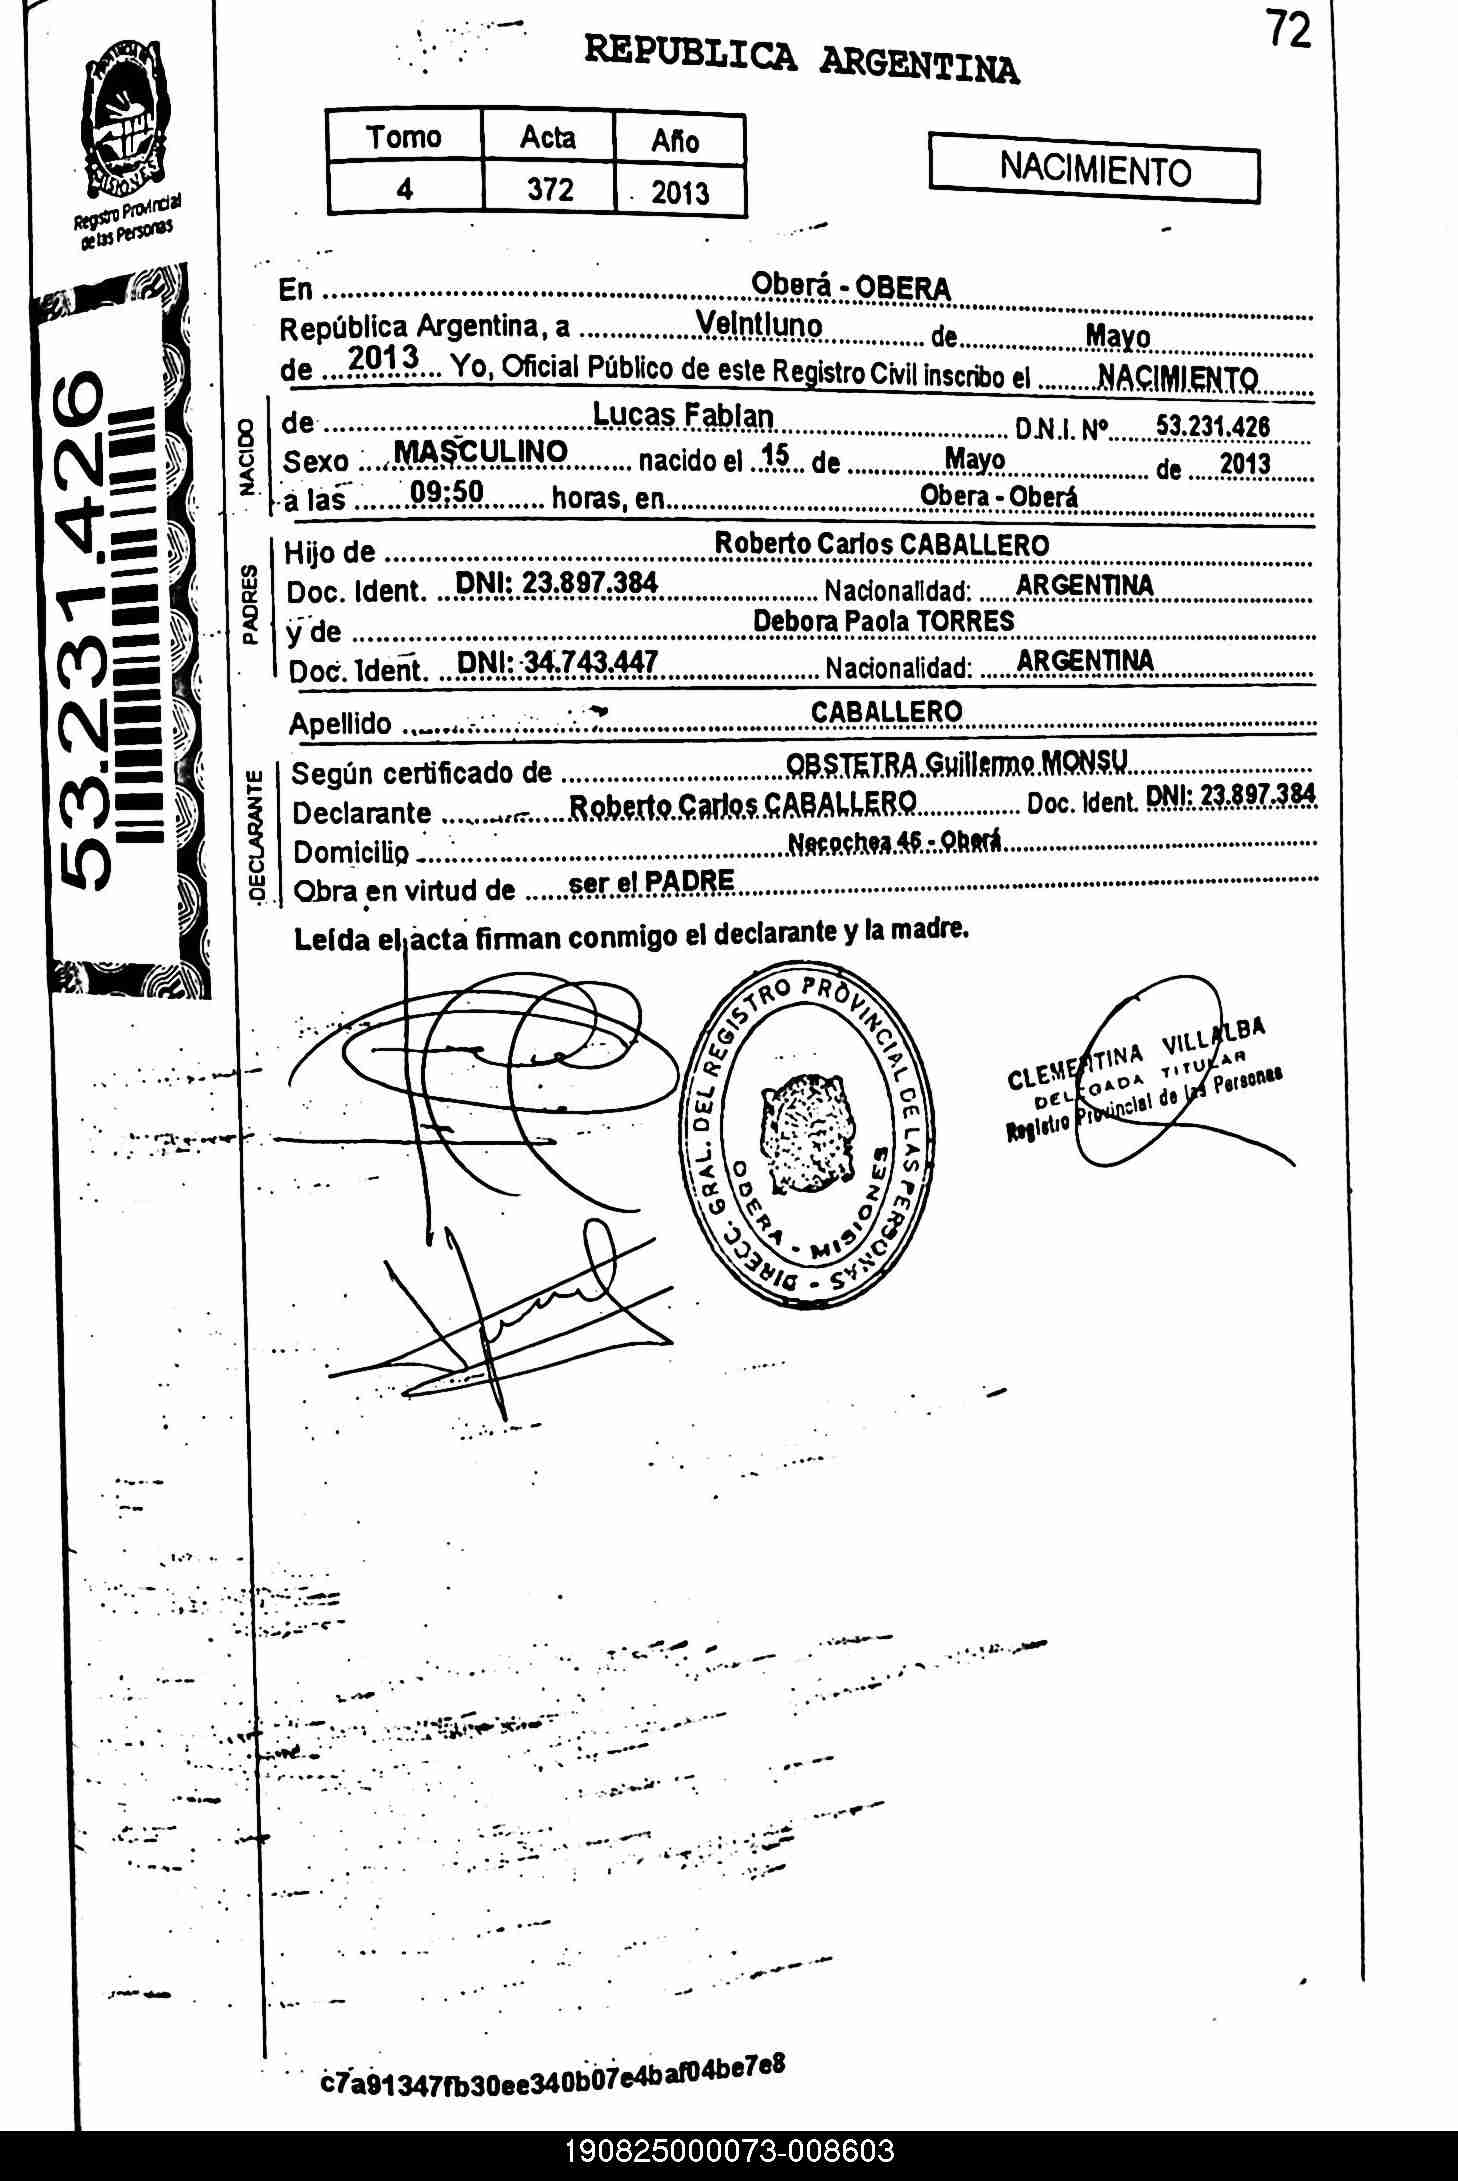 72
REPUBLICA ARGENTINA
PROVINCIA
MISIONES
Registro Provincial
de las Personas
Tomo Acta Año
4 372 2013
NACIMIENTO
53.231.426
En Oberá - OBERA
República Argentina, a Veintiuno de Mayo
de 2013 Yo, Oficial Público de este Registro Civil inscribo el NACIMIENTO
NACIDO
de Lucas Fabian D.N.I. Nº 53.231.426
Sexo MASCULINO nacido el 15 de Mayo de 2013
a las 09:50 horas, en Obera - Oberá
PADRES
Hijo de Roberto Carlos CABALLERO
Doc. Ident. DNI: 23.897.384 Nacionalidad: ARGENTINA
y de Debora Paola TORRES
Doc. Ident. DNI: 34.743.447 Nacionalidad: ARGENTINA
Apellido CABALLERO
DECLARANTE
Según certificado de OBSTETRA Guillermo MONSU
Declarante Roberto Carlos CABALLERO Doc. Ident. DNI: 23.897.384
Domicilio Necochea 46 - Oberá
Obra en virtud de ser el PADRE
Leída el acta firman conmigo el declarante y la madre.
DIRECC. GRAL. DEL REGISTRO PROVINCIAL DE LAS PERSONAS -
OBERA - MISIONES
CLEMENTINA VILLALBA
DELEGADA TITULAR
Registro Provincial de las Personas
c7a91347fb30ee340b07e4baf04be7e8
190825000073-008603